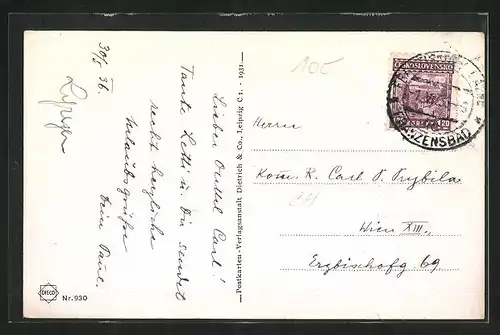 30/5 36.
Lieber Onkel Carl!
Tante Hetti u. Dir sendet
recht herzliche
Urlaubsgrüße
Dein Paul.
DIECO
Nr. 930
Postkarten-Verlagsanstalt Dietrich & Co., Leipzig C 1. - 1931.
10E
ČESKOSLOVENSKO
1'20
FRANZENSBAD
Herrn
Kom. R. Carl P. Prybila
Wien XIII.,
Erzbischofg 69